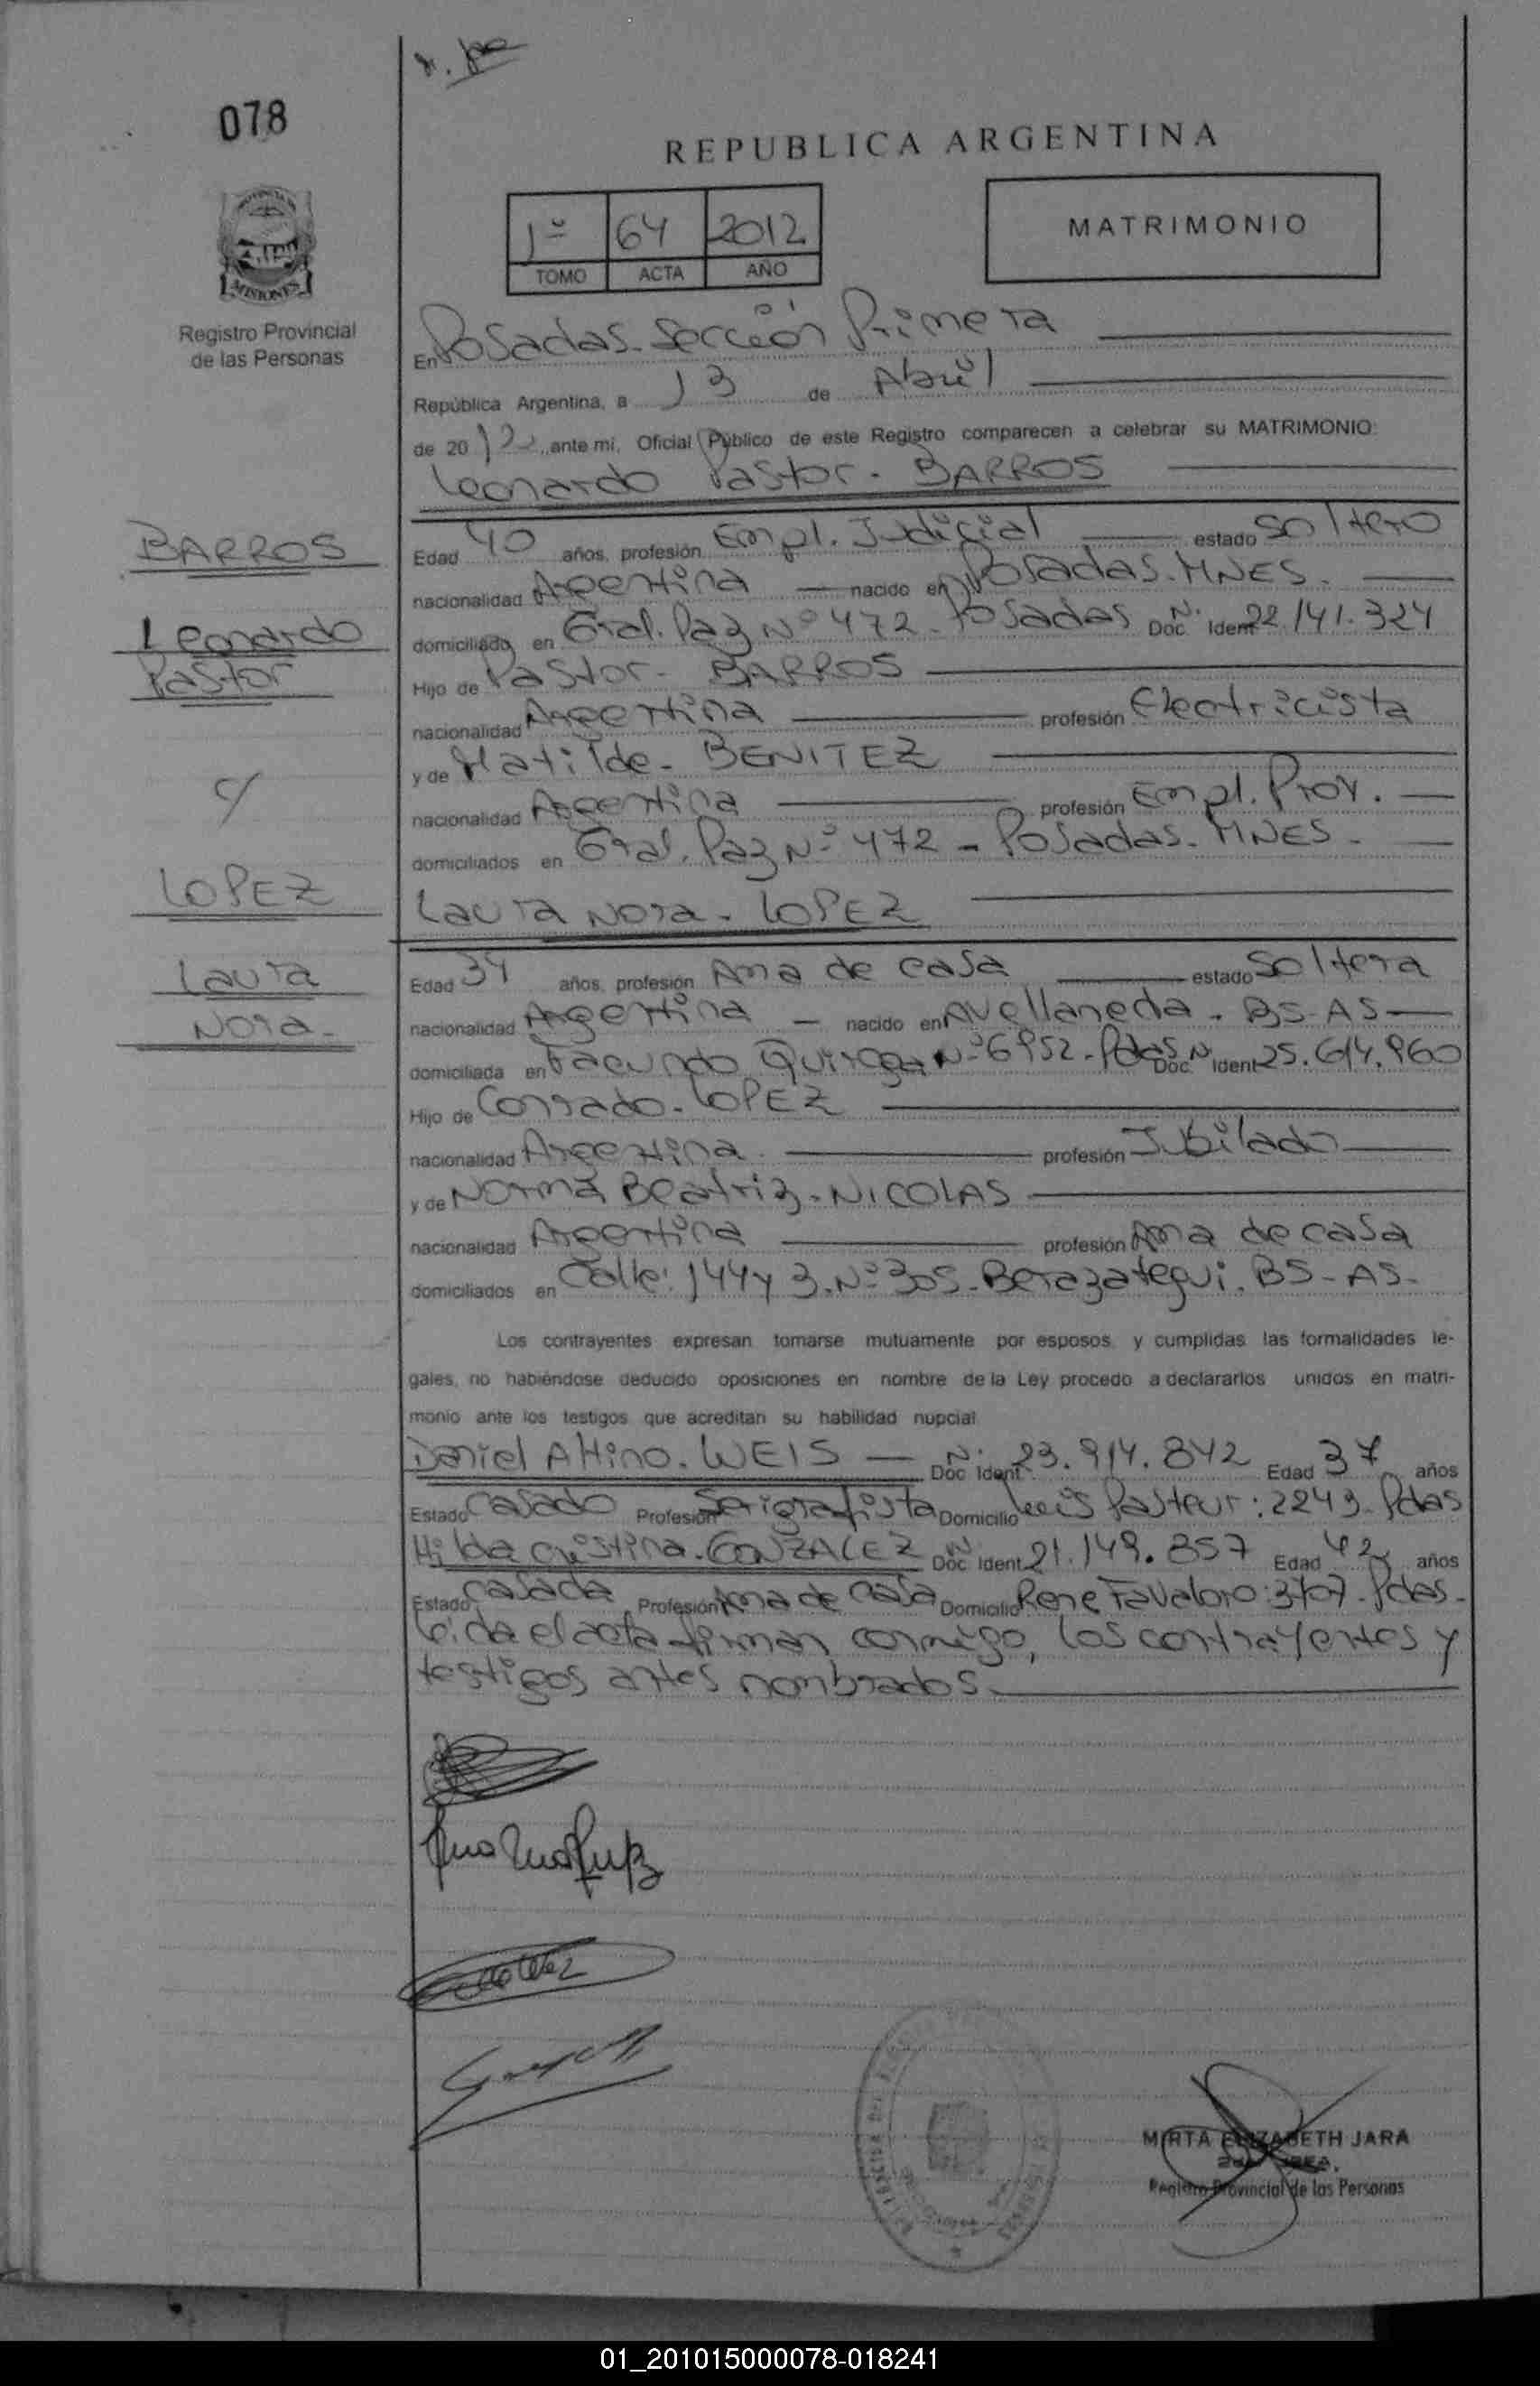 078
REPUBLICA ARGENTINA
1º 64 2012
TOMO ACTA AÑO
MATRIMONIO
MISIONES
Registro Provincial
de las Personas
En Posadas - Sección Primera
República Argentina, a 13 de Abril
de 2012 ante mi, Oficial Público de este Registro comparecen a celebrar su MATRIMONIO:
Leonardo Pastor - BARROS
BARROS
Leonardo
Pastor
c/
LOPEZ
Laura
Nora -
Edad 40 años, profesión Empl. Judicial estado Soltero
nacionalidad Argentina nacido en Posadas - MNES.
domiciliado en Gral. Paz Nº 472 - Posadas Doc. N. Ident. 22.141.324
Hijo de Pastor - BARROS
nacionalidad Argentina profesión Electricista
y de Matilde - BENITEZ
nacionalidad Argentina profesión Empl. Prov.
domiciliados en Gral. Paz Nº 472 - Posadas - MNES -
Laura Nora - LOPEZ
Edad 34 años, profesión Ama de casa estado Soltera
nacionalidad Argentina - nacido en Avellaneda - BS-AS -
domiciliada en Facundo Quiroga Nº 6952 - Pdas Doc. N. Ident. 25.614.960
Hijo de Conrado - LOPEZ
nacionalidad Argentina profesión Jubilado
y de Norma Beatriz - NICOLAS
nacionalidad Argentina profesión Ama de casa
domiciliados en Calle: 144 y 3 - Nº 305 - Berazategui. BS - AS -
Los contrayentes expresan tomarse mutuamente por esposos, y cumplidas las formalidades le-
gales, no habiéndose deducido oposiciones en nombre de la Ley procedo a declararlos unidos en matri-
monio ante los testigos que acreditan su habilidad nupcial
Daniel WEIS - Doc. N. Ident. 23.914.842 Edad 37 años
Estado Casado Profesión Serigrafista Domicilio Luis Pasteur: 2243 - Pdas
Hilda Cristina - GONZALEZ Doc. N. Ident. 21.149.857 Edad 42 años
Estado Casada Profesión Ama de casa Domicilio Rene Favaloro: 3707 - Pdas -
Leida el acta firman conmigo, los contrayentes y
testigos antes nombrados -
MIRTA ELIZABETH JARA
Registro Provincial de las Personas
01_201015000078-018241